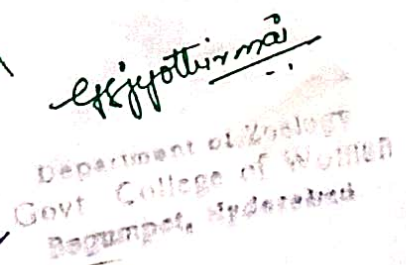 GSjyothirmai
Department of Zoology
Govt College of Women
Begumpet, Hyderabad